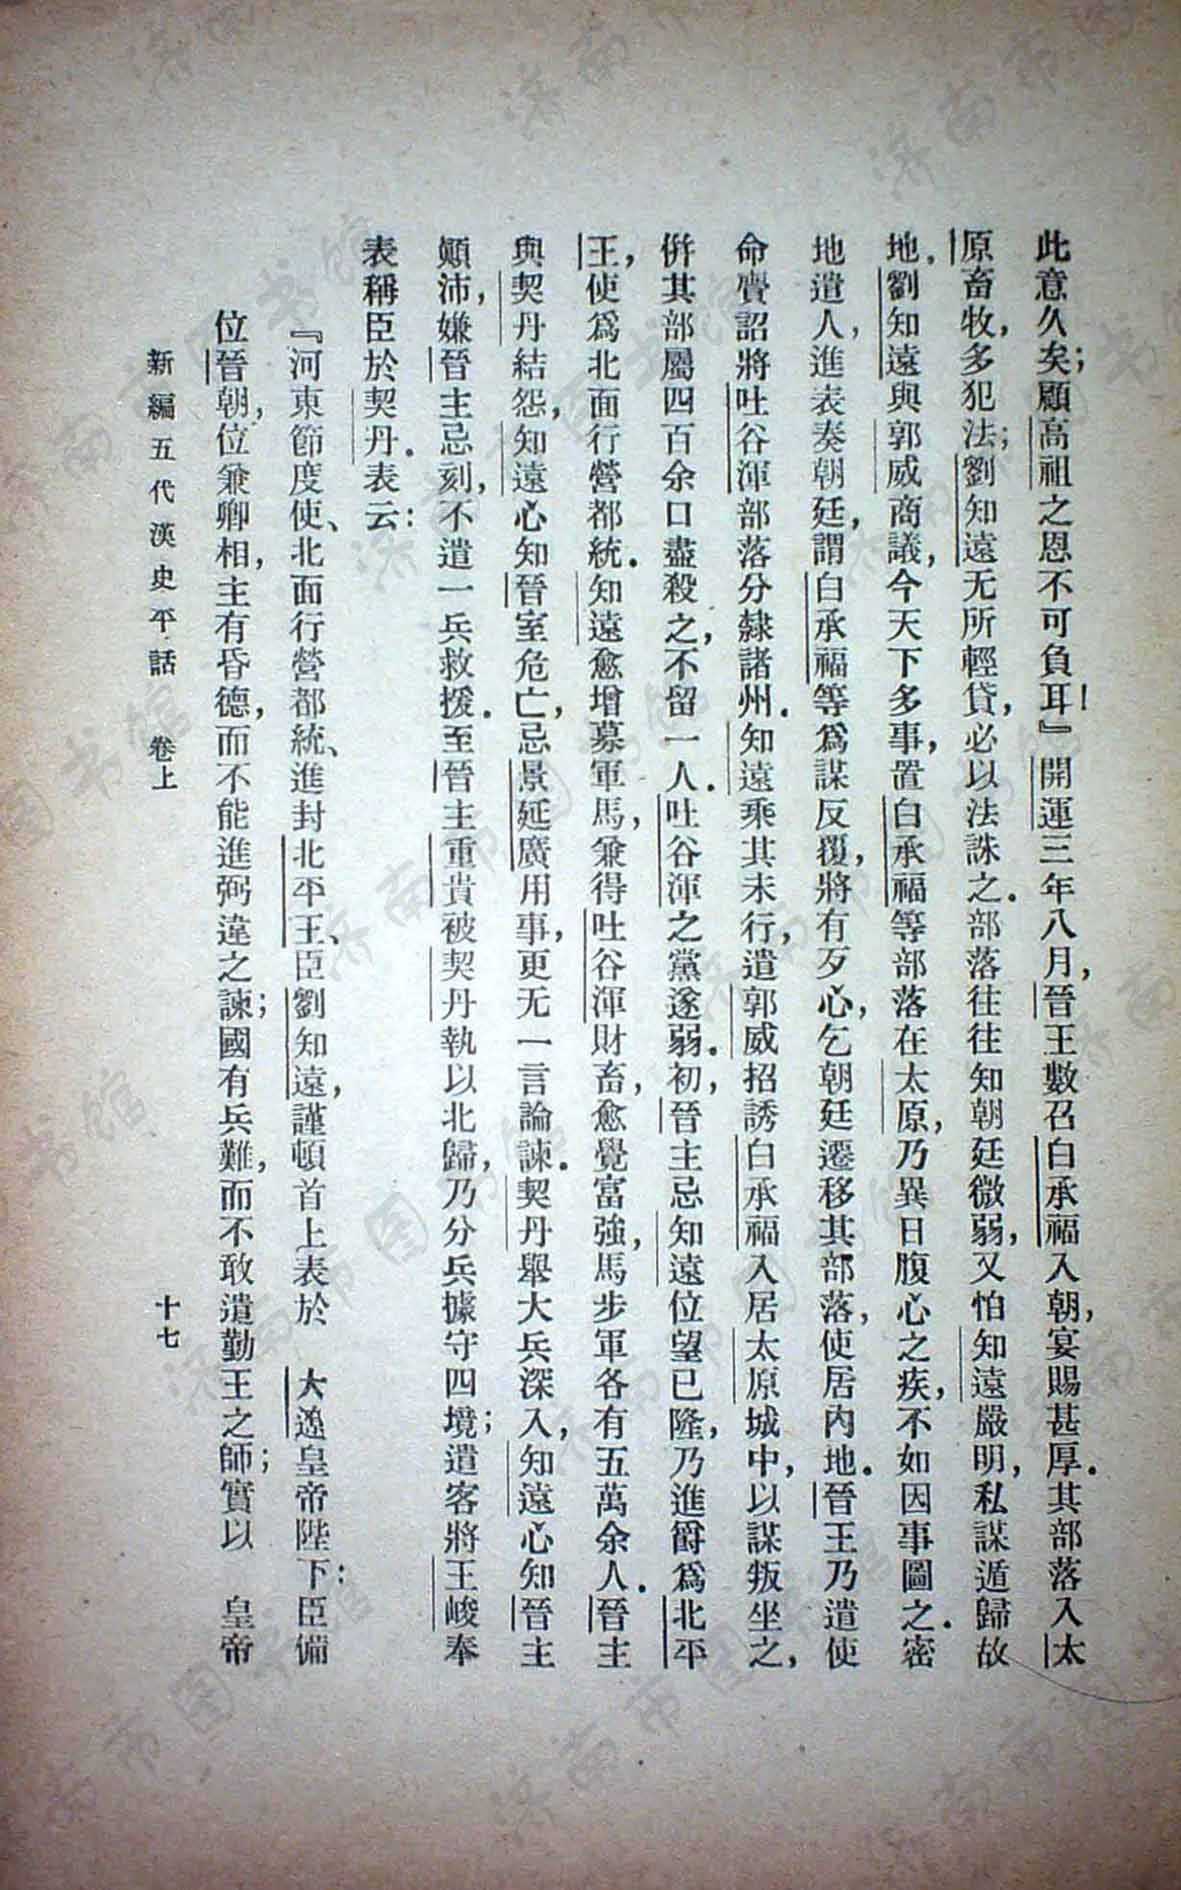 此意久矣；顧高祖之恩不可負耳！』開運三年八月，晉王數召白承福入朝，宴賜甚厚．其部落入太
原畜牧，多犯法；劉知遠无所輕貸，必以法誅之．部落往往知朝廷微弱，又怕知遠嚴明，私謀遁歸故
地．劉知遠與郭威商議，今天下多事，置白承福等部落在太原，乃異日腹心之疾，不如因事圖之．密
地遣人，進表奏朝廷，謂白承福等爲謀反覆，將有歹心，乞朝廷遷移其部落，使居內地．晉王乃遣使
命賫詔將吐谷渾部落分隸諸州．知遠乘其未行，遣郭威招誘白承福入居太原城中，以謀叛坐之，
併其部屬四百余口盡殺之，不留一人．吐谷渾之黨遂弱．初，晉主忌知遠位望已隆，乃進爵爲北平
王，使爲北面行營都統．知遠愈增募軍馬，兼得吐谷渾財畜，愈覺富強，馬步軍各有五萬余人．晉主
與契丹結怨，知遠心知晉室危亡，忌景延廣用事，更无一言論諫．契丹舉大兵深入，知遠心知晉主
顛沛，嫌晉主忌刻，不遣一兵救援．至晉主重貴被契丹執以北歸，乃分兵據守四境；遣客將王峻奉
表稱臣於契丹．表云：
『河東節度使、北面行營都統、進封北平王、臣劉知遠，謹頓首上表於　大遼皇帝陛下：臣備
位晉朝，位兼卿相，主有昏德，而不能進弼違之諫；國有兵難，而不敢遣勤王之師；實以　皇帝
新編五代漢史平話　卷上　十七
濟南市图书馆